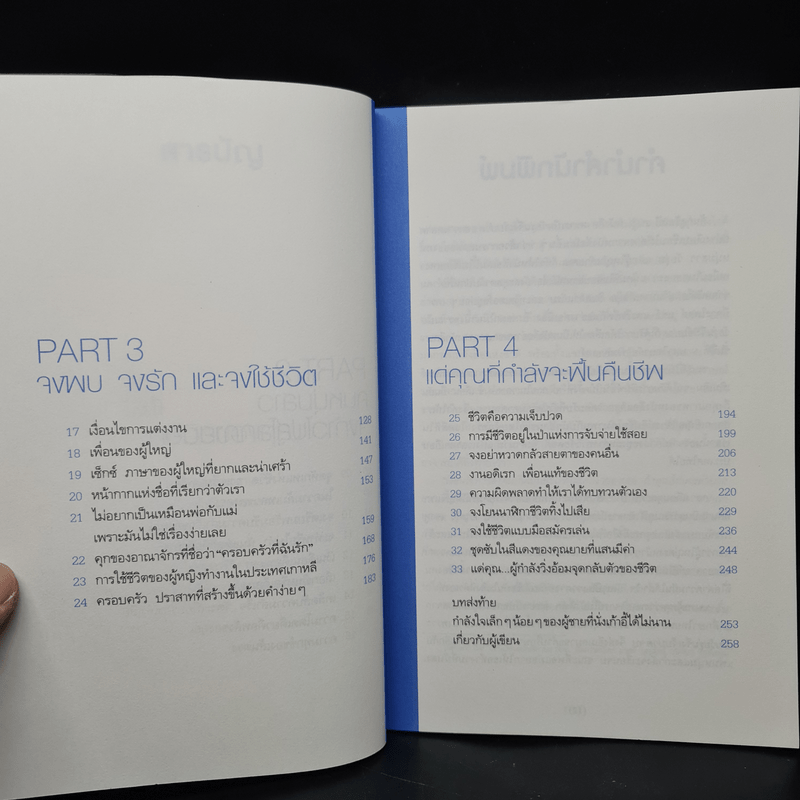 PART 3
จงพบ จงรัก และจงใช้ชีวิต
17 เงื่อนไขการแต่งงาน 128
18 เพื่อนของผู้ใหญ่ 141
19 เซ็กซ์ ภาษาของผู้ใหญ่ที่ยากและน่าเศร้า 147
20 หน้ากากแห่งชื่อที่เรียกว่าตัวเรา 153
21 ไม่อยากเป็นเหมือนพ่อกับแม่
เพราะมันไม่ใช่เรื่องง่ายเลย 159
22 คุกของอาณาจักรที่ชื่อว่า “ครอบครัวที่ฉันรัก” 168
23 การใช้ชีวิตของผู้หญิงทำงานในประเทศเกาหลี 176
24 ครอบครัว ปราสาทที่สร้างขึ้นด้วยคำง่ายๆ 183
PART 4
แด่คุณที่กำลังจะฟื้นคืนชีพ
25 ชีวิตคือความเจ็บปวด 194
26 การมีชีวิตอยู่ในป่าแห่งการจับจ่ายใช้สอย 199
27 จงอย่าหวาดกลัวสายตาของคนอื่น 206
28 งานอดิเรก เพื่อนแท้ของชีวิต 213
29 ความผิดพลาดทำให้เราได้ทบทวนตัวเอง 220
30 จงโยนนาฬิกาชีวิตทิ้งไปเสีย 229
31 จงใช้ชีวิตแบบมือสมัครเล่น 236
32 ชุดชั้นในสีแดงของคุณยายที่แสนมีค่า 244
33 แด่คุณ...ผู้กำลังวิ่งอ้อมจุดกลับตัวของชีวิต 248
บทส่งท้าย
กำลังใจเล็กๆ น้อยๆ ของผู้ชายที่นั่งเก้าอี้ได้ไม่นาน 253
เกี่ยวกับผู้เขียน 258